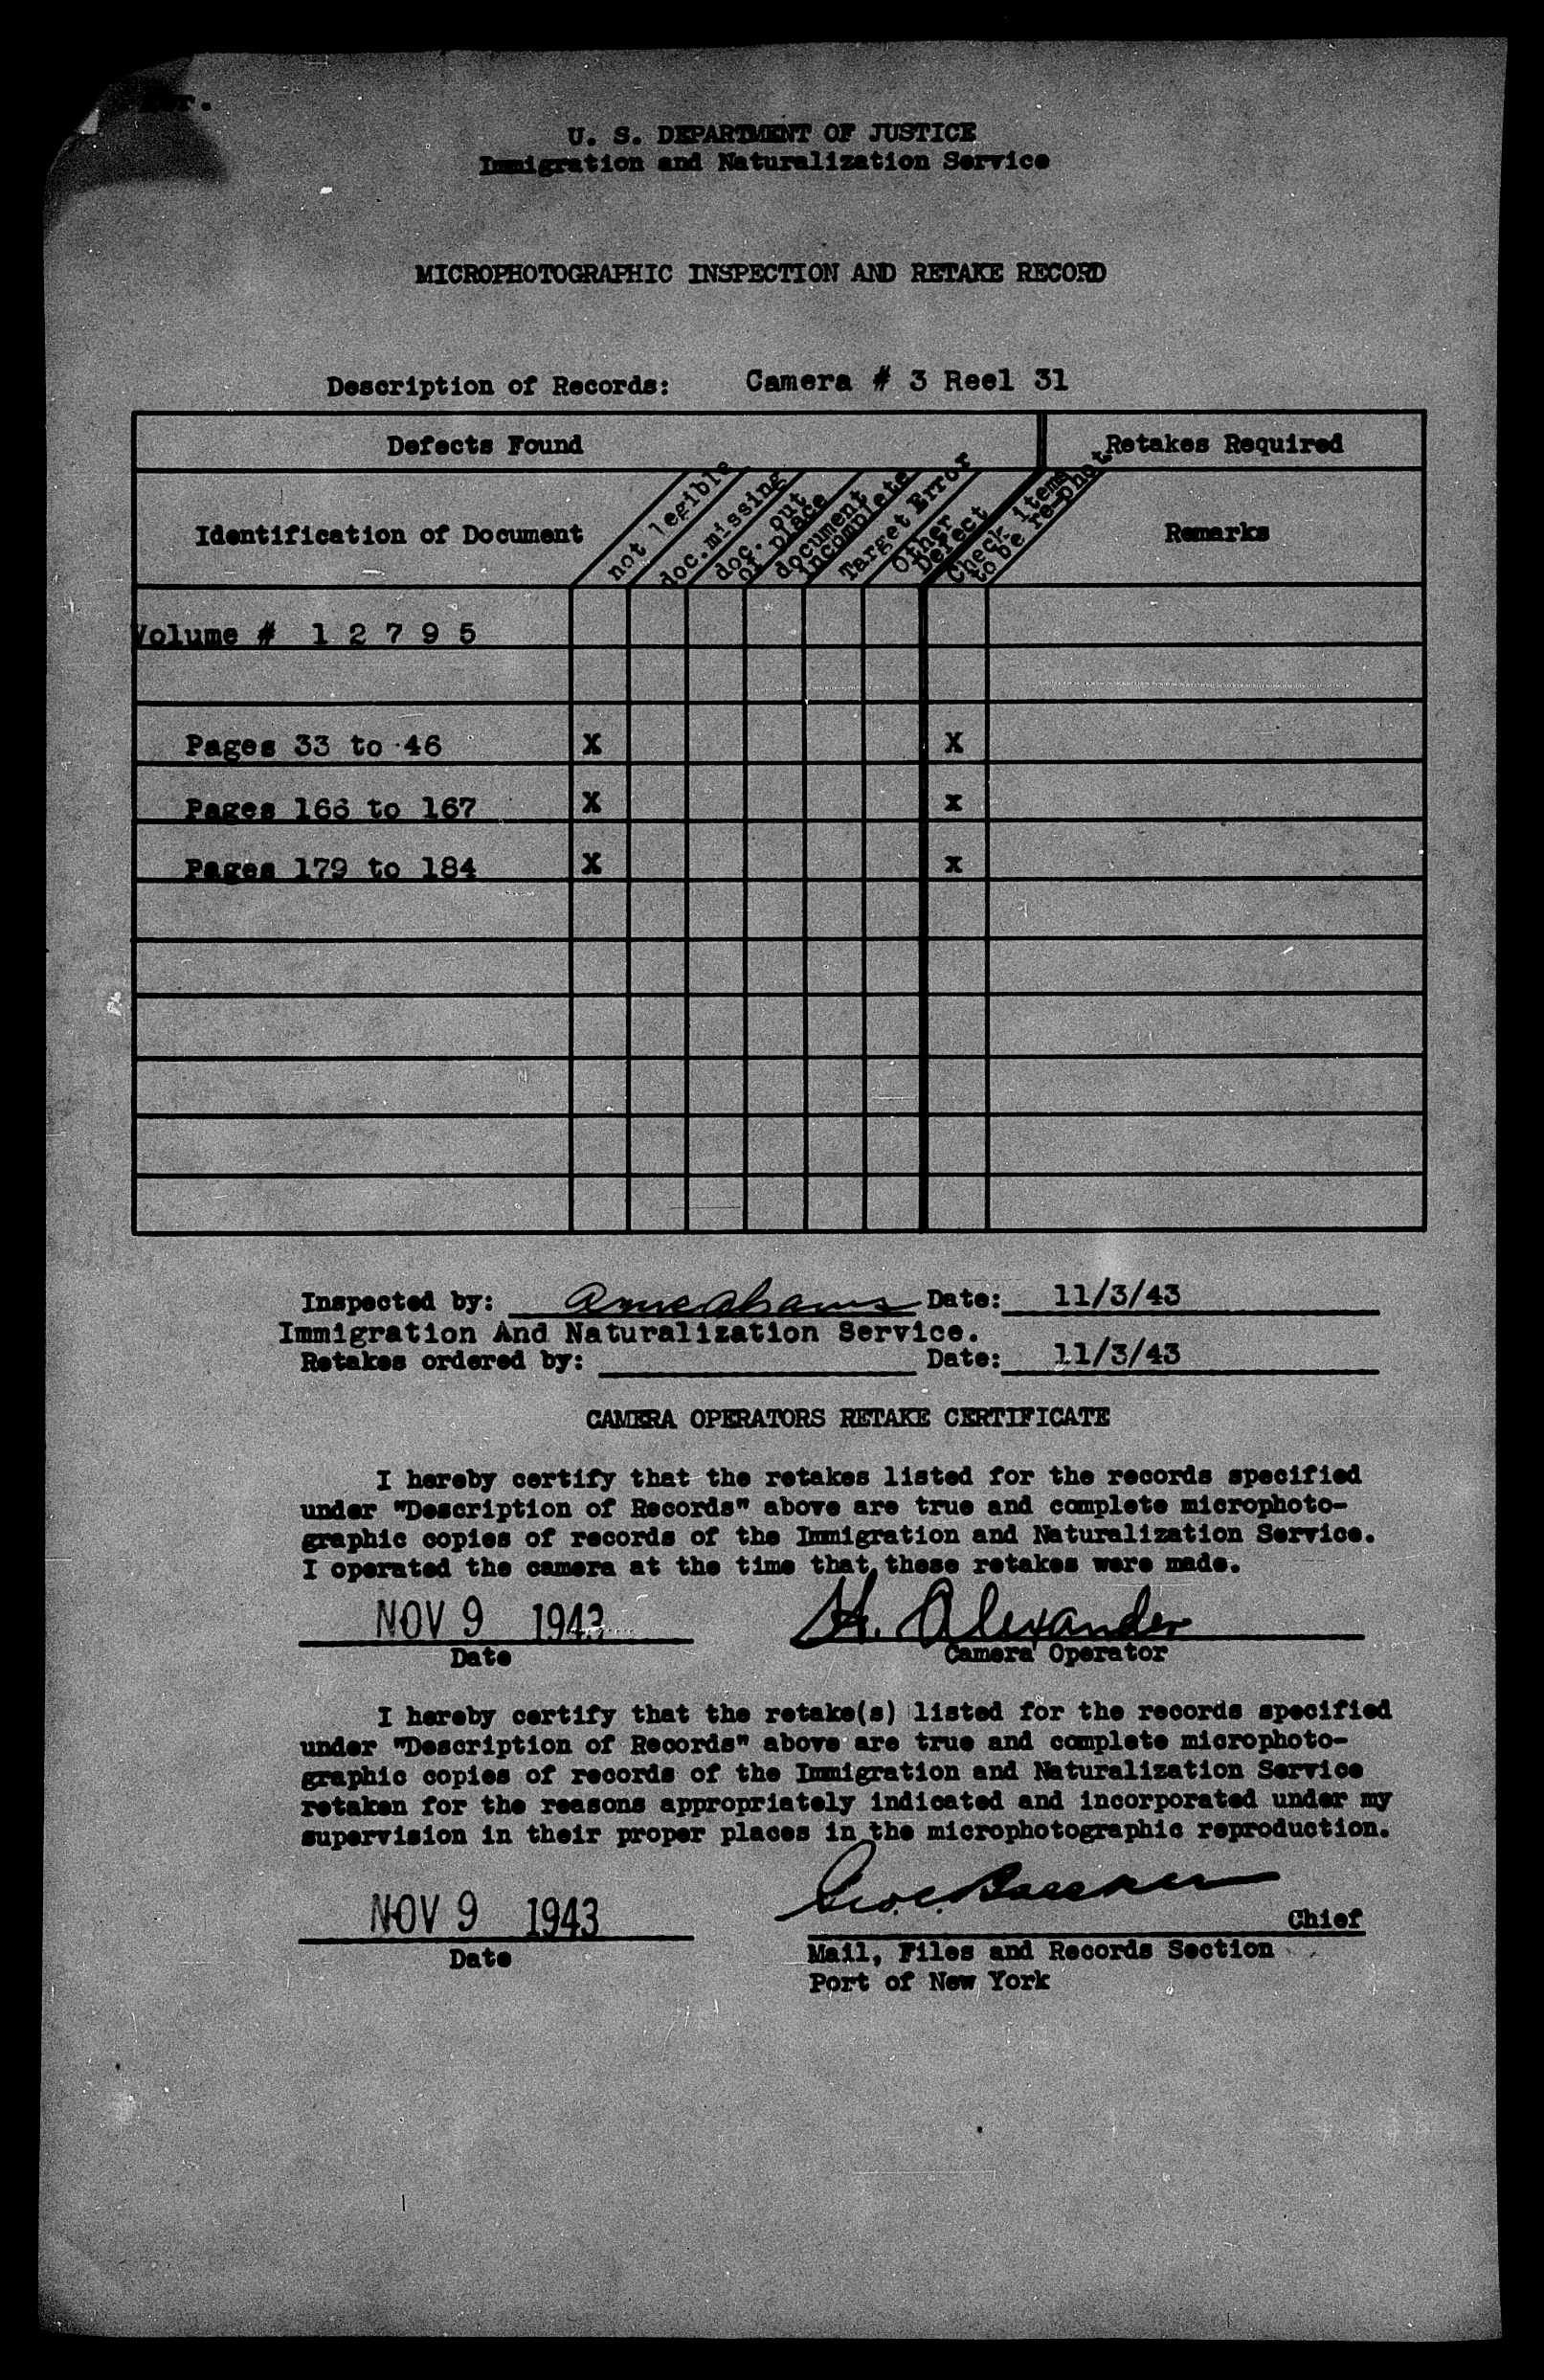 U. S. DEPARTMENT OF JUSTICE
Immigration and Naturalization Service
MICROPHOTOGRAPHIC INSPECTION AND RETAKE RECORD
Description of Records: Camera # 3 Reel 31
Defects Found Retakes Required
Identification of Document not legible doc.missing doc. out of place document incomplete Target Error Other Defect Check items to be re-phot. Remarks
Volume # 1 2 7 9 5
Pages 33 to 46 X X
Pages 166 to 167 X x
Pages 179 to 184 X x
Inspected by: Date: 11/3/43
Immigration And Naturalization Service.
Retakes ordered by: Date: 11/3/43
CAMERA OPERATORS RETAKE CERTIFICATE
I hereby certify that the retakes listed for the records specified
under "Description of Records" above are true and complete microphoto-
graphic copies of records of the Immigration and Naturalization Service.
I operated the camera at the time that these retakes were made.
NOV 9 1943 H. Alexander
Date Camera Operator
I hereby certify that the retake(s) listed for the records specified
under "Description of Records" above are true and complete microphoto-
graphic copies of records of the Immigration and Naturalization Service
retaken for the reasons appropriately indicated and incorporated under my
supervision in their proper places in the microphotographic reproduction.
NOV 9 1943 Chief
Date Mail, Files and Records Section
Port of New York